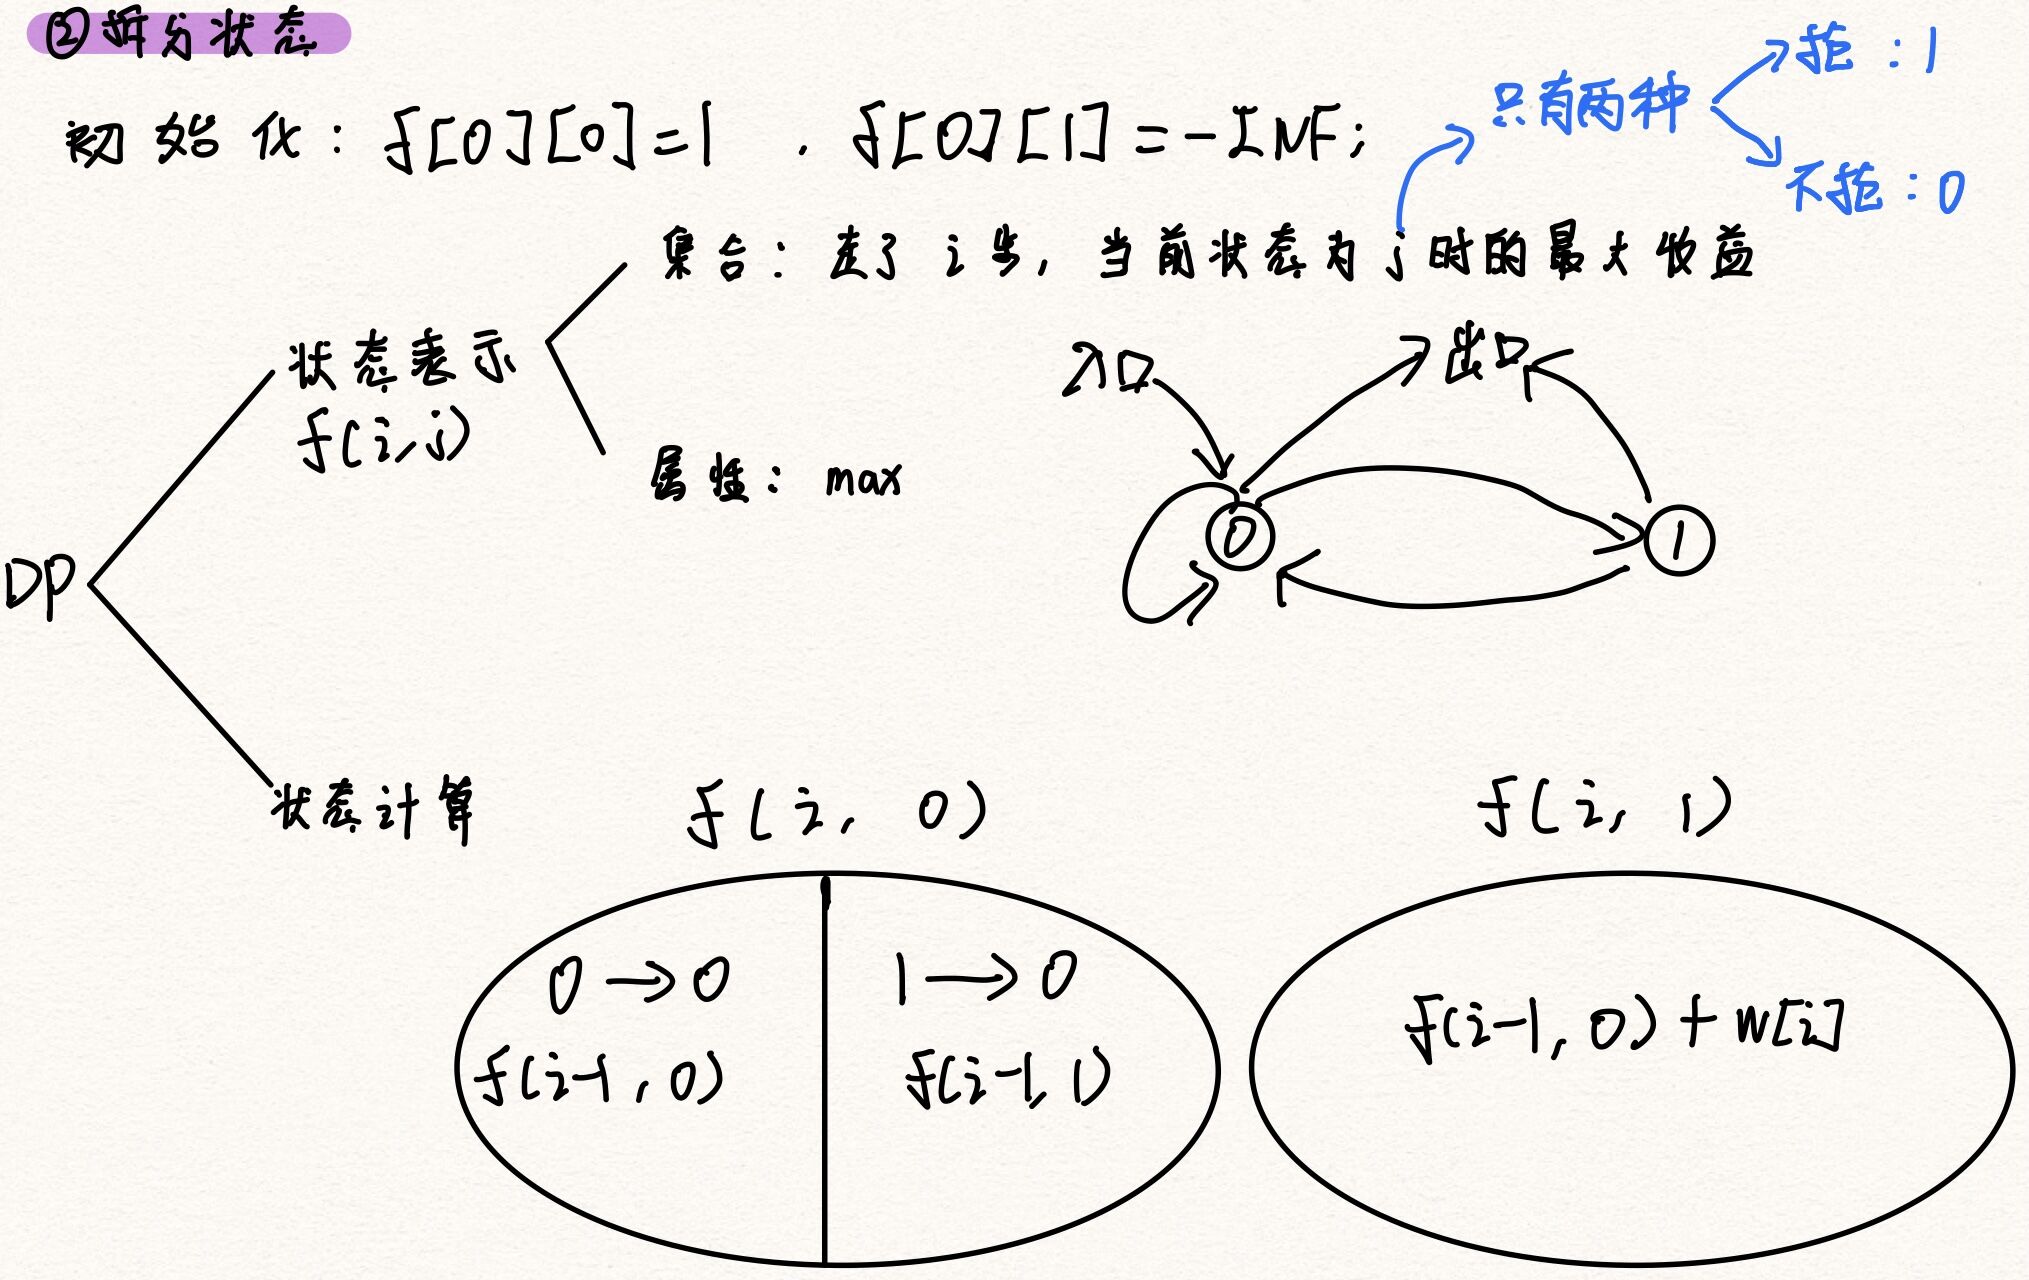 ②拆分状态
初始化：f[0][0]=1 . f[0][1]=-INF;
只有两种
抢：1
不抢：0
集合：走了i步，当前状态为j时的最大收益
状态表示
f(i,j)
属性：max
入口
出口
0
1
DP
状态计算
f(i, 0)
f(i, 1)
0→0
f(i-1, 0)
1→0
f(i-1, 1)
f(i-1, 0) + w[i]